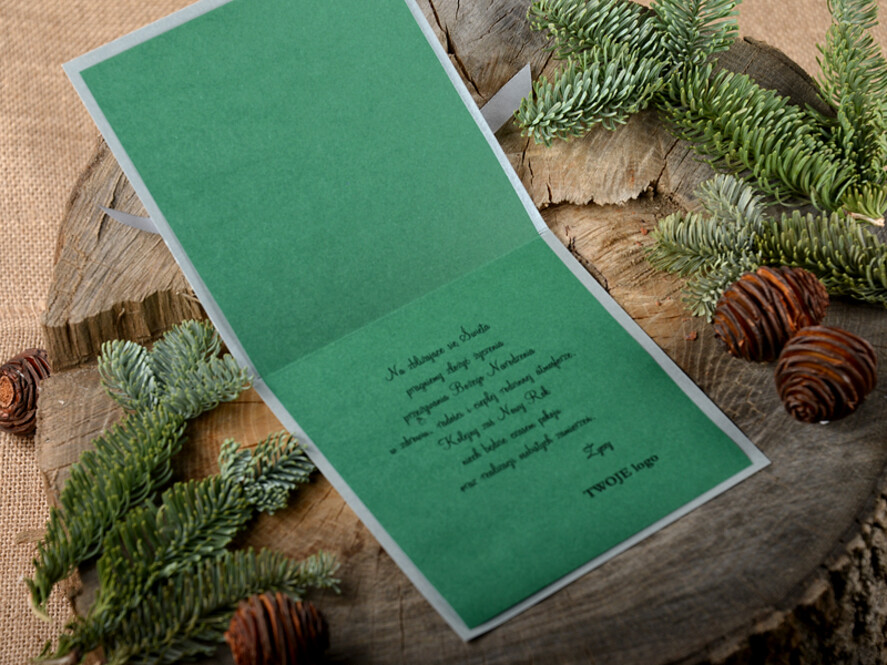 Na zbliżające się Święta
pragniemy złożyć życzenia
przeżywania Bożego Narodzenia
w zdrowiu, radości i ciepłej rodzinnej atmosferze.
Kolejny zaś Nowy Rok
niech będzie czasem pokoju
oraz realizacji
Życzy
TWOJE logo